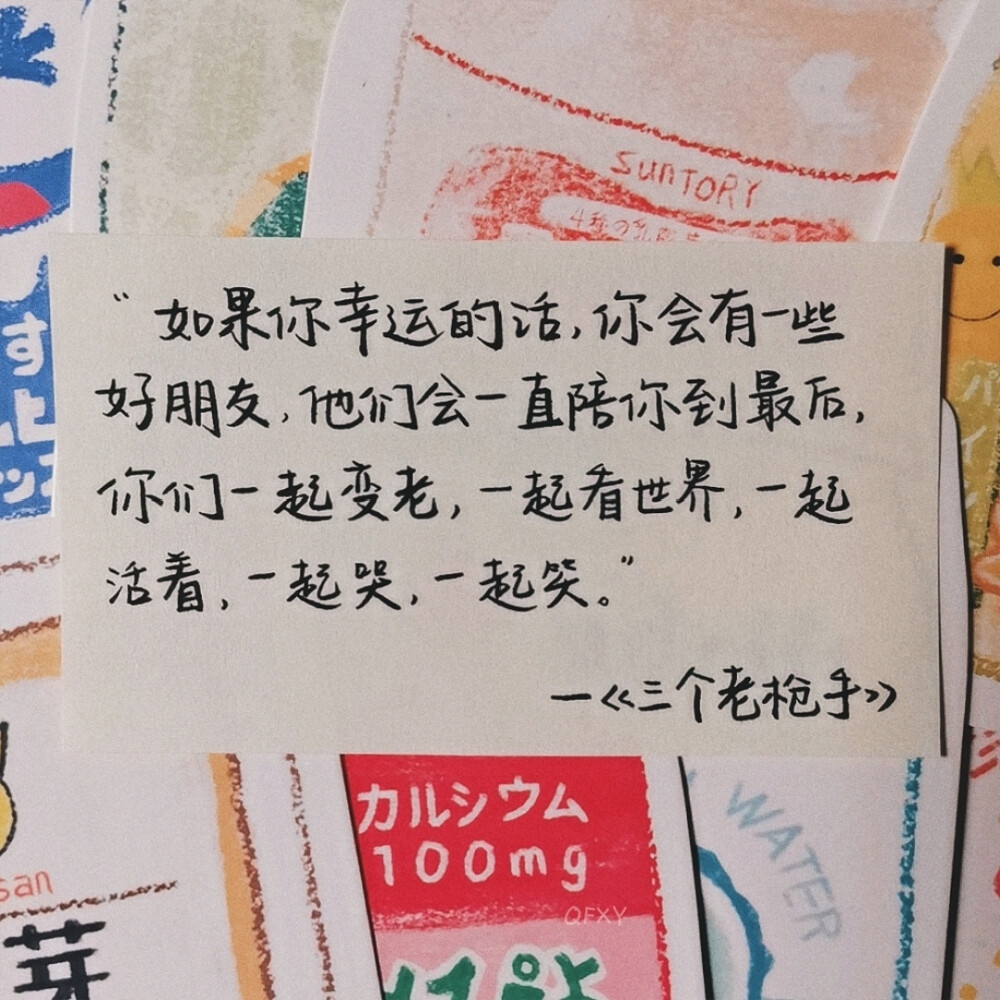 SUNTORY
す
上
パイン
“如果你幸运的活,你会有一些
好朋友,他们会一直陪你到最后,
你们一起变老,一起看世界,一起
活着,一起哭,一起笑。”
—《三个老枪手》
カルシウム
100mg
WATER
san
芽
QFXY